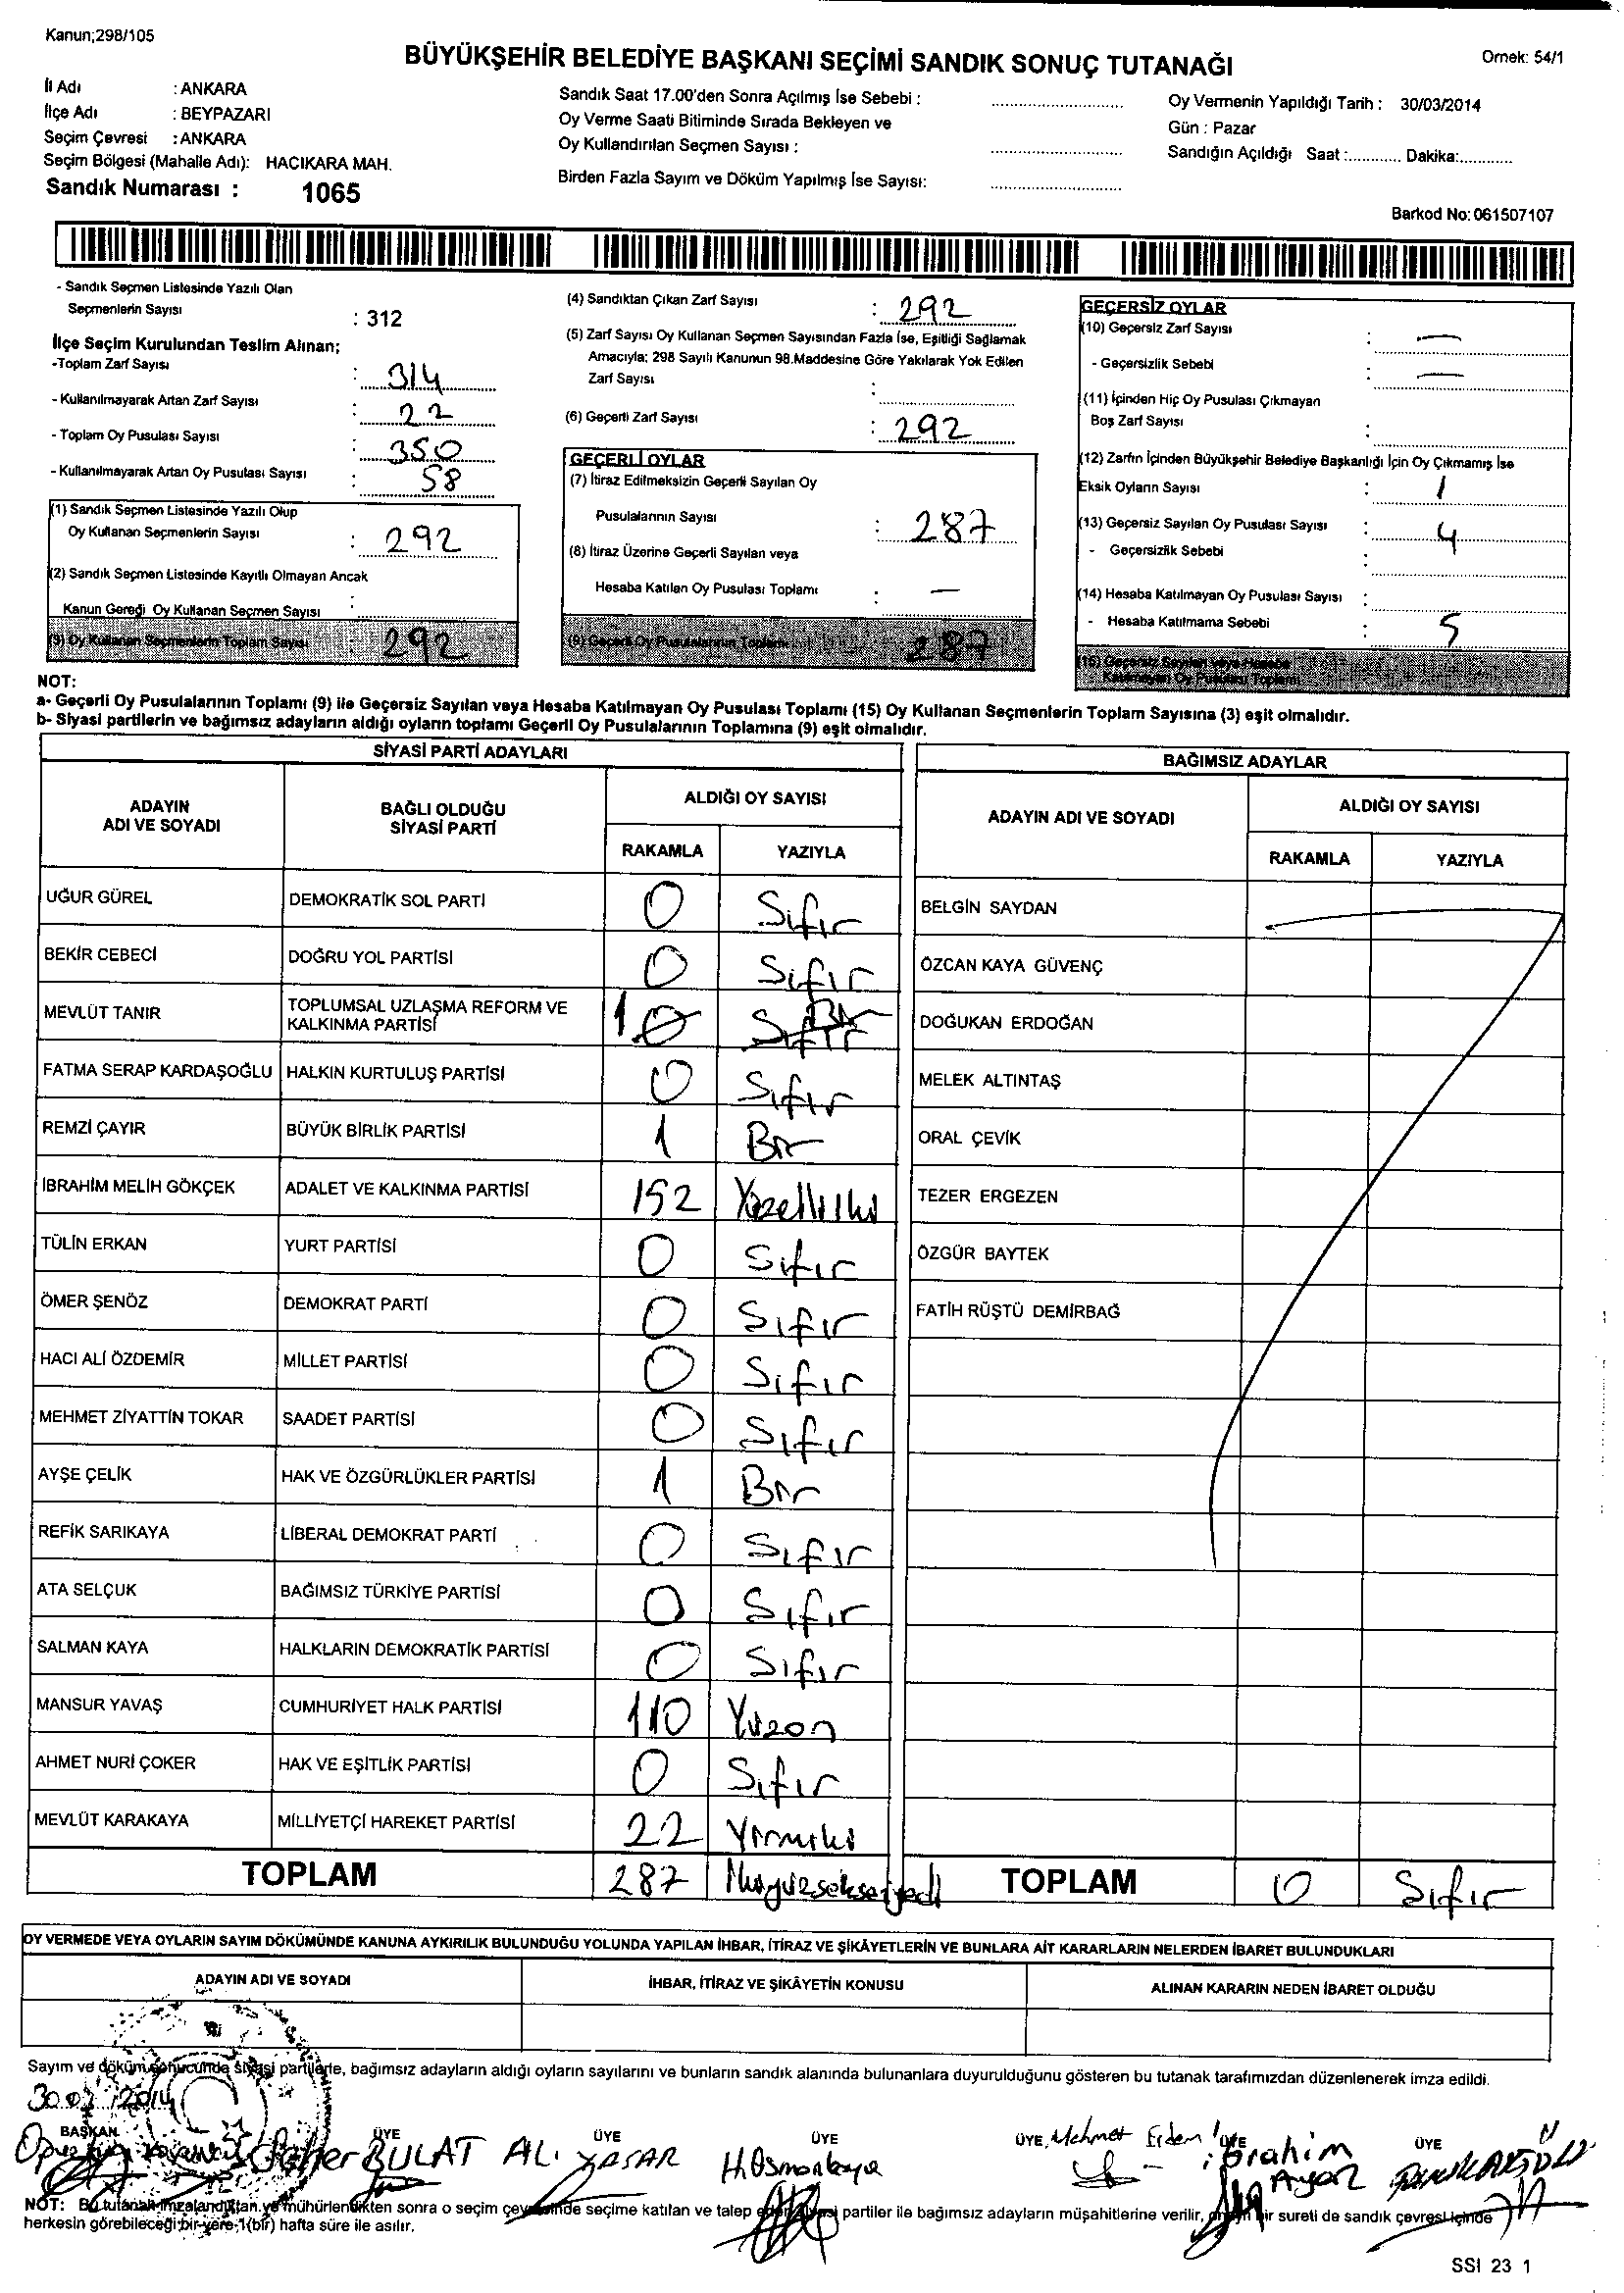 Kanun;298/105
BÜYÜKŞEHİR BELEDİYE BAŞKANI SEÇİMİ SANDIK SONUÇ TUTANAĞI
Ornek: 54/1
İl Adı : ANKARA
İlçe Adı : BEYPAZARI
Seçim Çevresi : ANKARA
Seçim Bölgesi (Mahalle Adı): HACIKARA MAH.
Sandık Numarası : 1065
Sandık Saat 17.00'den Sonra Açılmış İse Sebebi :
Oy Verme Saati Bitiminde Sırada Bekleyen ve
Oy Kullandırılan Seçmen Sayısı :
Birden Fazla Sayım ve Döküm Yapılmış İse Sayısı:
Oy Vermenin Yapıldığı Tarih : 30/03/2014
Gün : Pazar
Sandığın Açıldığı Saat :............ Dakika:............
Barkod No: 061507107
- Sandık Seçmen Listesinde Yazılı Olan
Seçmenlerin Sayısı : 312
İlçe Seçim Kurulundan Teslim Alınan;
-Toplam Zarf Sayısı : 314
- Kullanılmayarak Artan Zarf Sayısı : 22
- Toplam Oy Pusulası Sayısı : 350
- Kullanılmayarak Artan Oy Pusulası Sayısı : 58
(1) Sandık Seçmen Listesinde Yazılı Olup
Oy Kullanan Seçmenlerin Sayısı : 292
(2) Sandık Seçmen Listesinde Kayıtlı Olmayan Ancak
Kanun Gereği Oy Kullanan Seçmen Sayısı :
(3) Oy Kullanan Seçmenlerin Toplam Sayısı : 292
(4) Sandıktan Çıkan Zarf Sayısı : 292
(5) Zarf Sayısı Oy Kullanan Seçmen Sayısından Fazla İse, Eşitliği Sağlamak
Amacıyla; 298 Sayılı Kanunun 98.Maddesine Göre Yakılarak Yok Edilen
Zarf Sayısı :
(6) Geçerli Zarf Sayısı : 292
GEÇERLİ OYLAR
(7) İtiraz Edilmeksizin Geçerli Sayılan Oy
Pusulalarının Sayısı : 287
(8) İtiraz Üzerine Geçerli Sayılan veya
Hesaba Katılan Oy Pusulası Toplamı : —
(9) Geçerli Oy Pusulalarının Toplamı : 287
GEÇERSİZ OYLAR
(10) Geçersiz Zarf Sayısı : —
- Geçersizlik Sebebi : —
(11) İçinden Hiç Oy Pusulası Çıkmayan
Boş Zarf Sayısı :
(12) Zarfın İçinden Büyükşehir Belediye Başkanlığı İçin Oy Çıkmamış İse
Eksik Oyların Sayısı : 1
(13) Geçersiz Sayılan Oy Pusulası Sayısı : 4
- Geçersizlik Sebebi :
(14) Hesaba Katılmayan Oy Pusulası Sayısı :
- Hesaba Katılmama Sebebi : 5
(15) Geçersiz Sayılan veya Hesaba
Katılmayan Oy Pusulası Toplamı
NOT:
a- Geçerli Oy Pusulalarının Toplamı (9) ile Geçersiz Sayılan veya Hesaba Katılmayan Oy Pusulası Toplamı (15) Oy Kullanan Seçmenlerin Toplam Sayısına (3) eşit olmalıdır.
b- Siyasi partilerin ve bağımsız adayların aldığı oyların toplamı Geçerli Oy Pusulalarının Toplamına (9) eşit olmalıdır.
SİYASİ PARTİ ADAYLARI
ADAYIN ADI VE SOYADI BAĞLI OLDUĞU SİYASİ PARTİ ALDIĞI OY SAYISI
RAKAMLA YAZIYLA
UĞUR GÜREL DEMOKRATİK SOL PARTİ 0 Sıfır
BEKİR CEBECİ DOĞRU YOL PARTİSİ 0 Sıfır
MEVLÜT TANIR TOPLUMSAL UZLAŞMA REFORM VE KALKINMA PARTİSİ 1 0 Sıfır Bir
FATMA SERAP KARDAŞOĞLU HALKIN KURTULUŞ PARTİSİ 0 Sıfır
REMZİ ÇAYIR BÜYÜK BİRLİK PARTİSİ 1 Bir
İBRAHİM MELİH GÖKÇEK ADALET VE KALKINMA PARTİSİ 152 Yüzelliiki
TÜLİN ERKAN YURT PARTİSİ 0 Sıfır
ÖMER ŞENÖZ DEMOKRAT PARTİ 0 Sıfır
HACI ALİ ÖZDEMİR MİLLET PARTİSİ 0 Sıfır
MEHMET ZİYATTİN TOKAR SAADET PARTİSİ 0 Sıfır
AYŞE ÇELİK HAK VE ÖZGÜRLÜKLER PARTİSİ 1 Bir
REFİK SARIKAYA LİBERAL DEMOKRAT PARTİ 0 Sıfır
ATA SELÇUK BAĞIMSIZ TÜRKİYE PARTİSİ 0 Sıfır
SALMAN KAYA HALKLARIN DEMOKRATİK PARTİSİ 0 Sıfır
MANSUR YAVAŞ CUMHURİYET HALK PARTİSİ 110 Yüzon
AHMET NURİ ÇOKER HAK VE EŞİTLİK PARTİSİ 0 Sıfır
MEVLÜT KARAKAYA MİLLİYETÇİ HAREKET PARTİSİ 22 Yirmiki
TOPLAM 287 İkiyüzseksenyedi
BAĞIMSIZ ADAYLAR
ADAYIN ADI VE SOYADI ALDIĞI OY SAYISI
RAKAMLA YAZIYLA
BELGİN SAYDAN
ÖZCAN KAYA GÜVENÇ
DOĞUKAN ERDOĞAN
MELEK ALTINTAŞ
ORAL ÇEVİK
TEZER ERGEZEN
ÖZGÜR BAYTEK
FATİH RÜŞTÜ DEMİRBAĞ
TOPLAM 0 Sıfır
OY VERMEDE VEYA OYLARIN SAYIM DÖKÜMÜNDE KANUNA AYKIRILIK BULUNDUĞU YOLUNDA YAPILAN İHBAR, İTİRAZ VE ŞİKÂYETLERİN VE BUNLARA AİT KARARLARIN NELERDEN İBARET BULUNDUKLARI
ADAYIN ADI VE SOYADI İHBAR, İTİRAZ VE ŞİKÂYETİN KONUSU ALINAN KARARIN NEDEN İBARET OLDUĞU
Sayım ve döküm sonucunda siyasi partilerle, bağımsız adayların aldığı oyların sayılarını ve bunların sandık alanında bulunanlara duyurulduğunu gösteren bu tutanak tarafımızdan düzenlenerek imza edildi.
30.03.2014
BAŞKAN ÜYE ÜYE ÜYE ÜYE ÜYE ÜYE
BULAT ALİ YAŞAR H.Osmankaya Mehmet Erdem İbrahim Ayaz
NOT: Bu tutanak imzalandıktan ve mühürlendikten sonra o seçim çevresinde seçime katılan ve talep eden siyasi partiler ile bağımsız adayların müşahitlerine verilir, onaylı bir sureti de sandık çevresi içinde
herkesin görebileceği bir yere 1(bir) hafta süre ile asılır.
SSI 23 1